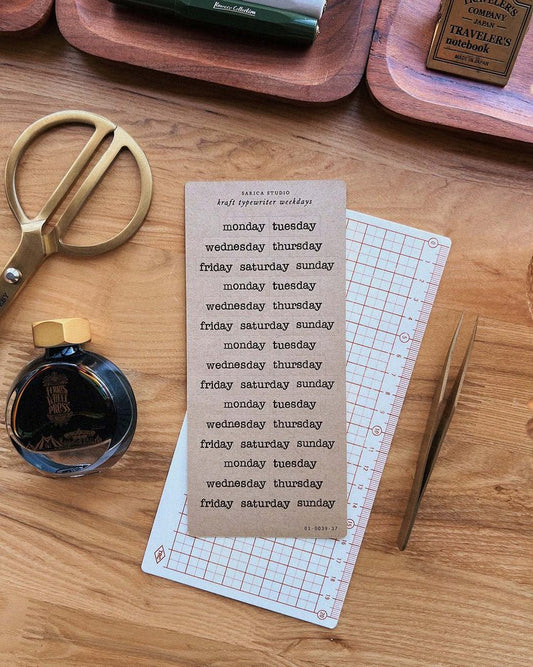 Kaweco Collection
TRAVELER'S
COMPANY
JAPAN
TRAVELER'S
notebook
MADE IN JAPAN
SARICA STUDIO
kraft typewriter weekdays
monday tuesday
wednesday thursday
friday saturday sunday
monday tuesday
wednesday thursday
friday saturday sunday
monday tuesday
wednesday thursday
friday saturday sunday
monday tuesday
wednesday thursday
friday saturday sunday
monday tuesday
wednesday thursday
friday saturday sunday
01-0039-37
FERRIS
WHEEL
PRESS